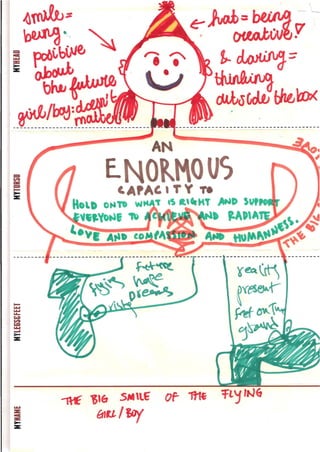 MYHEAD
smile =
being
positive
about
the future
girl/boy: doesn't
matter
hat = being
creative!
& daring =
thinking
outside the box
MYTORSO
AN
ENORMOUS
CAPACITY TO
HOLD ONTO WHAT IS RIGHT AND SUPPORT
EVERYONE TO ACHIEVE AND RADIATE
LOVE AND COMPASSION AND HUMANNESS.
THE BIG
LOVE
MYLEGS&FEET
flying
future
hope
dreams
reality
present
feet on the
ground
MYNAME
THE BIG SMILE OF THE FLYING
GIRL/BOY